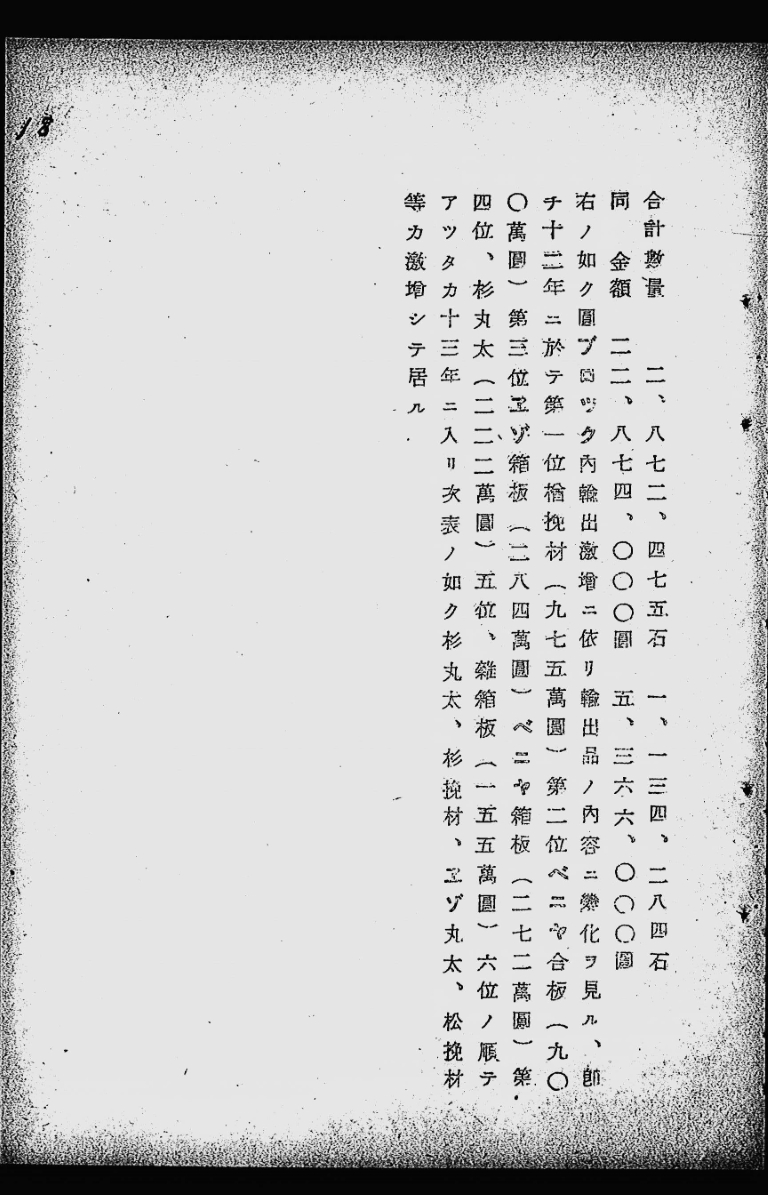 18
合計數量　二、八七二、四七五石　一、一三四、二八四石
同　金額　二二、八七四、〇〇〇圓　五、三六六、〇〇〇圓
右ノ如ク圓ブロツク內輸出激增ニ依リ輸出品ノ內容ニ變化ヲ見ル、卽
チ十二年ニ於テ第一位楢挽材（九七五萬圓）第二位ベニヤ合板（九〇
〇萬圓）第三位ヱゾ箱板（二八四萬圓）ベニヤ箱板（二七二萬圓）第
四位、杉丸太（二二二萬圓）五位、雜箱板（一五五萬圓）六位ノ順テ
アツタカ十三年ニ入リ次表ノ如ク杉丸太、杉挽材、ヱゾ丸太、松挽材
等カ激增シテ居ル